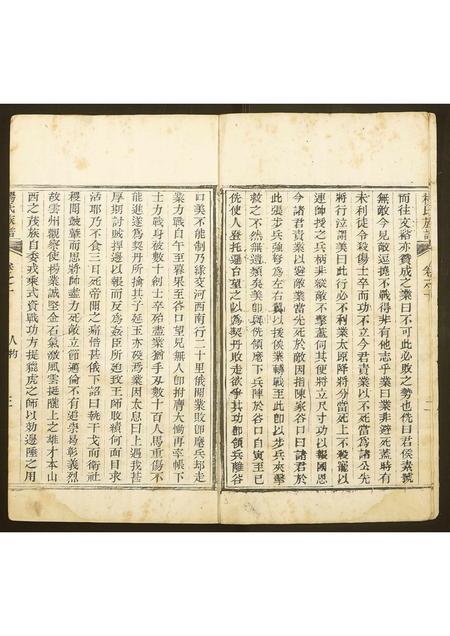 而往文裕亦贊成之業曰不可此必敗之勢也侁曰君侯素號
無敵今見敵逗撓不戰得非有他志乎業曰業非避死蓋時有
未利徒令殺傷士卒而功不立今君責業以不死當為諸公先
將行泣謂美曰此行必不利業太原降將分當死上不殺寵以
連帥授之兵柄非縱敵不擊蓋伺其便將立尺寸功以報國恩
今諸君責業以避敵業當先死於敵因指陳家谷口曰諸君於
此張步兵強弩為左右翼以援俟業轉戰至此即以步兵夾擊
救之不然無遺類矣美即與侁領麾下兵陣於谷口自寅至巳
侁使人登托邏台望之以為契丹敗走欲爭其功即領兵離谷
口美不能制乃緣交河西南行二十里俄聞業敗即麾兵却走
業力戰自午至暮果至谷口望見無人即拊膺大慟再率帳下
士力戰身被數十創士卒殆盡業猶手刃數十百人馬重傷不
能進遂為契丹所擒其子延玉亦歿焉業因太息曰上遇我甚
厚期討賊捍邊以報而反為姦臣所迫致王師敗績何面目求
活耶乃不食三日死帝聞之痛惜甚俄下詔曰執干戈而衛社
稷聞鼓鼙而思將師盡力死敵立節邁倫不有追崇曷彰義烈
故雲州觀察使楊業誠堅金石氣激風雲挺隴上之雄才本山
西之茂族自委戎乘式資戰功方提貔虎之師以効邊陲之用
楊氏族譜
卷之一
人物
三